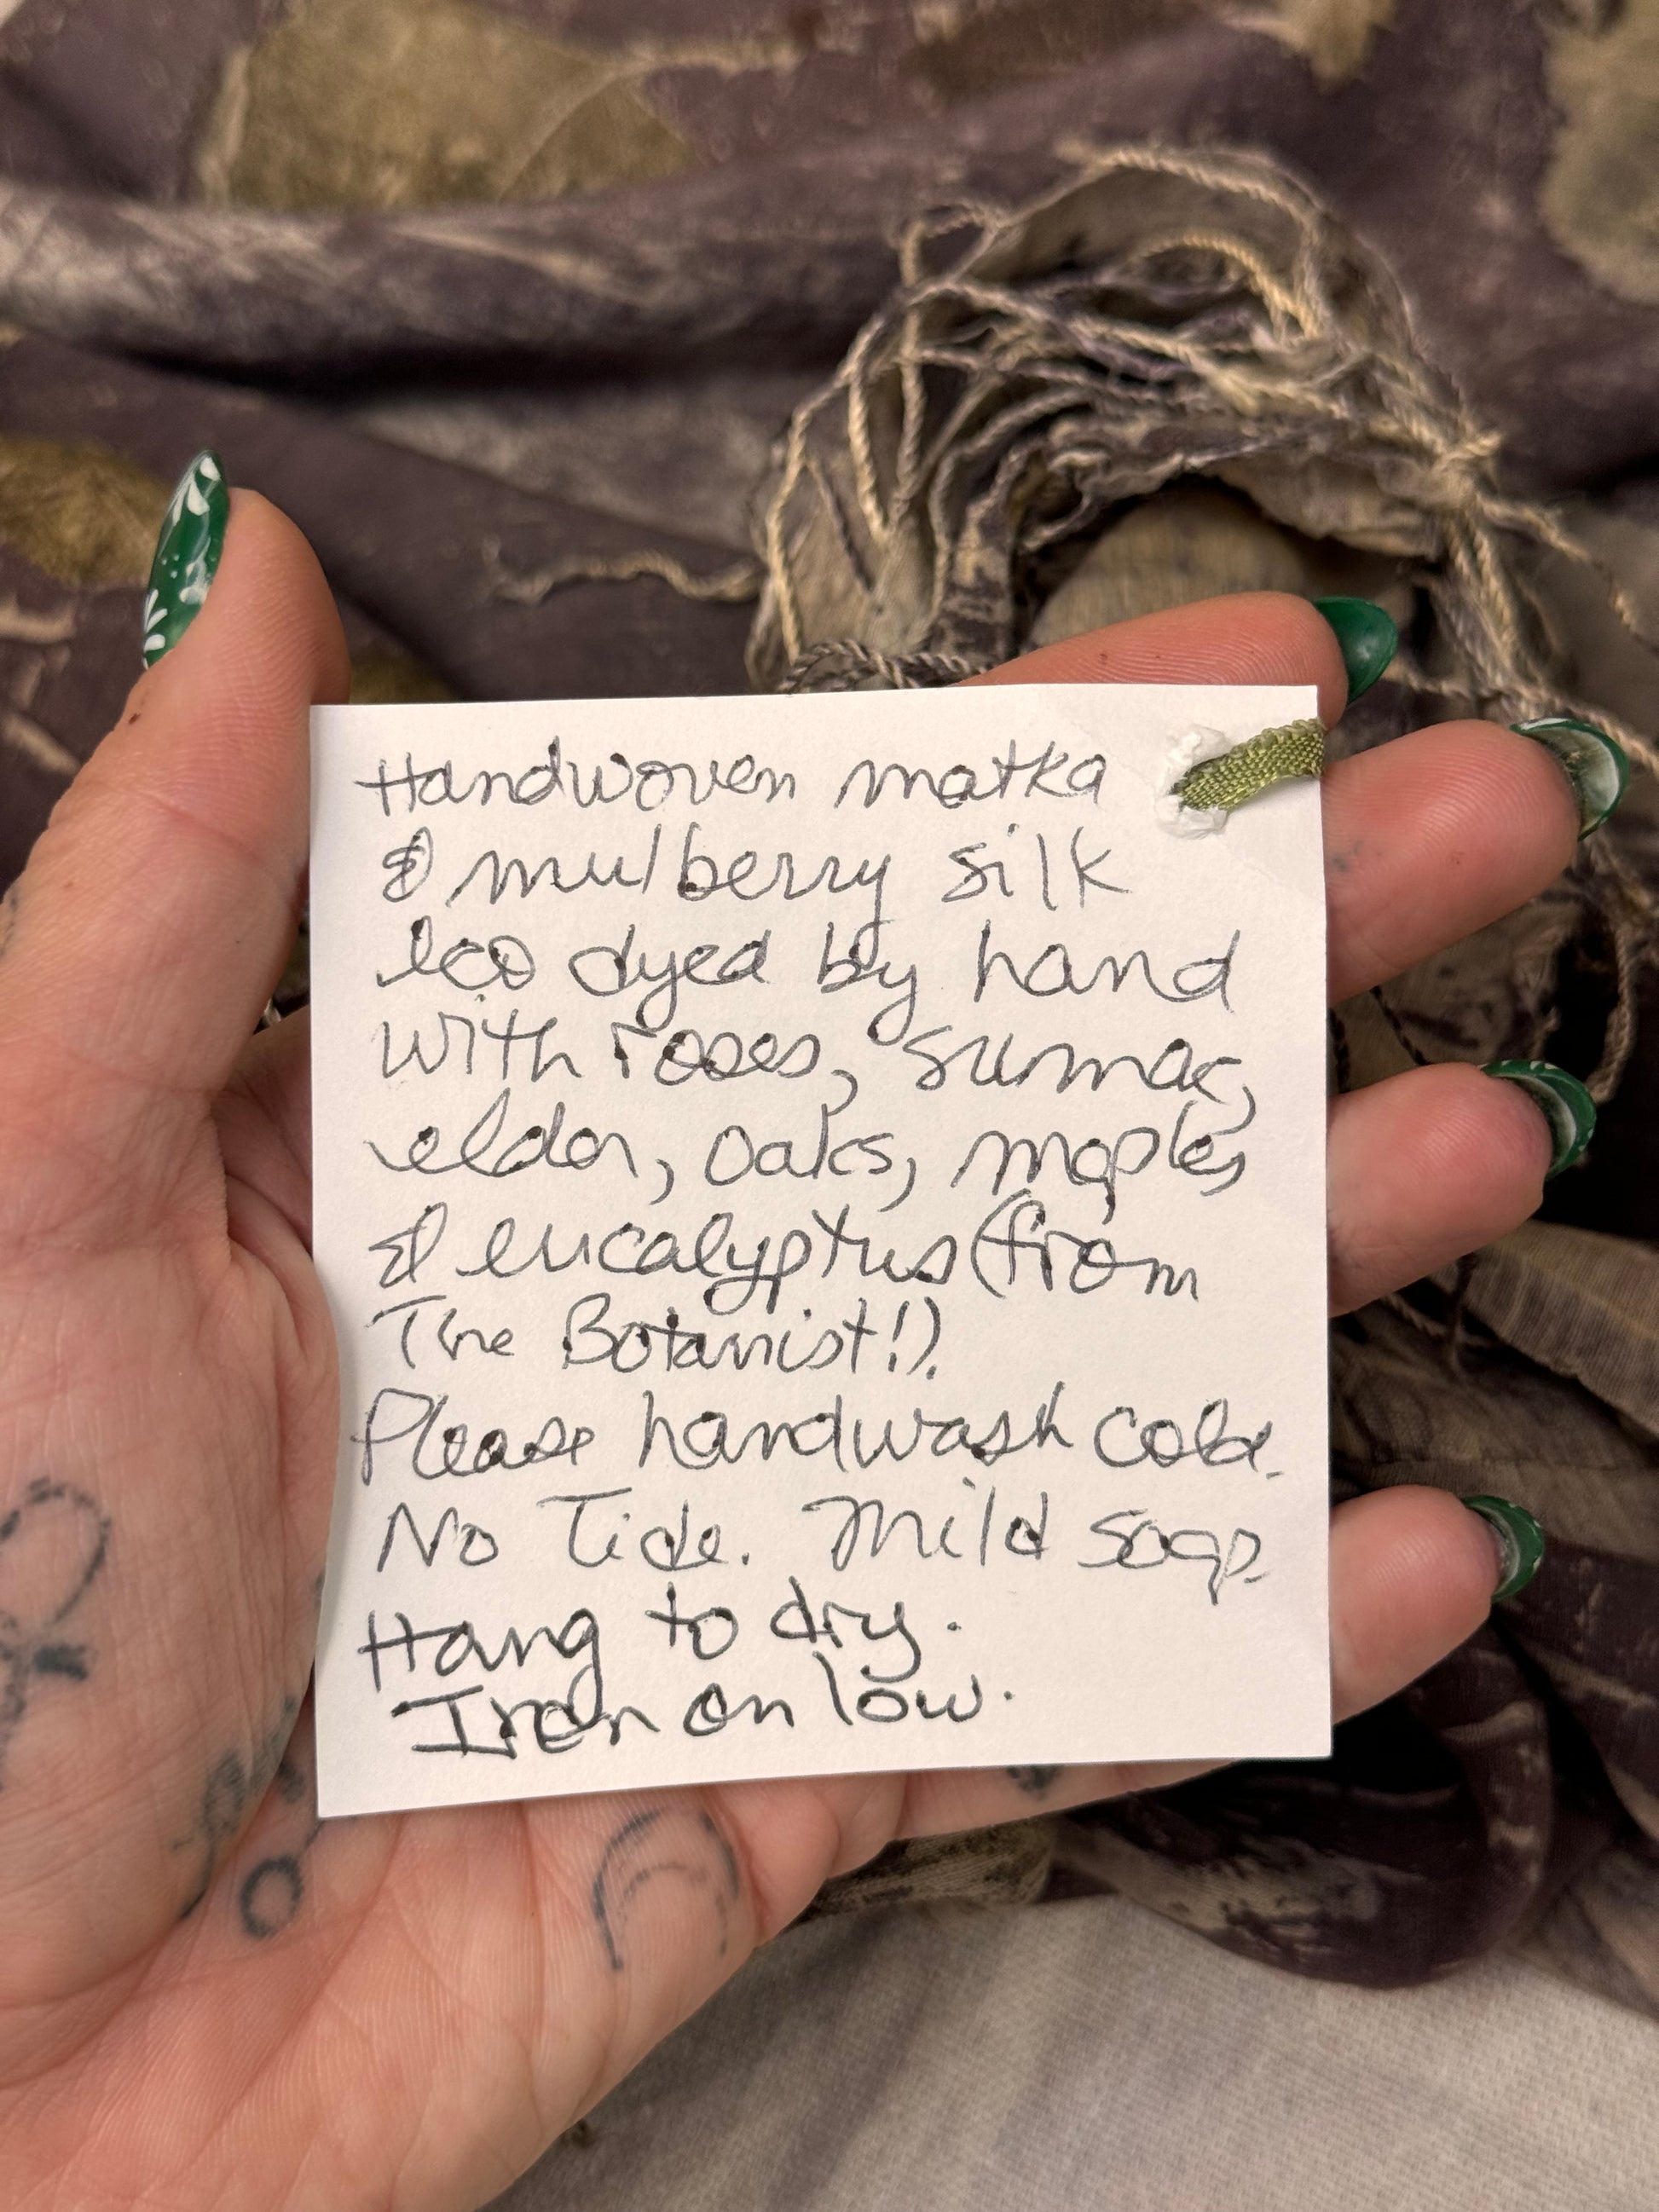 Handwoven matka
& mulberry silk
eco dyed by hand
with roses, sumac,
elder, oaks, maples
& eucalyptus (from
The Botanist!).
Please handwash cold.
No Tide. Mild soap.
Hang to dry.
Iron on low.